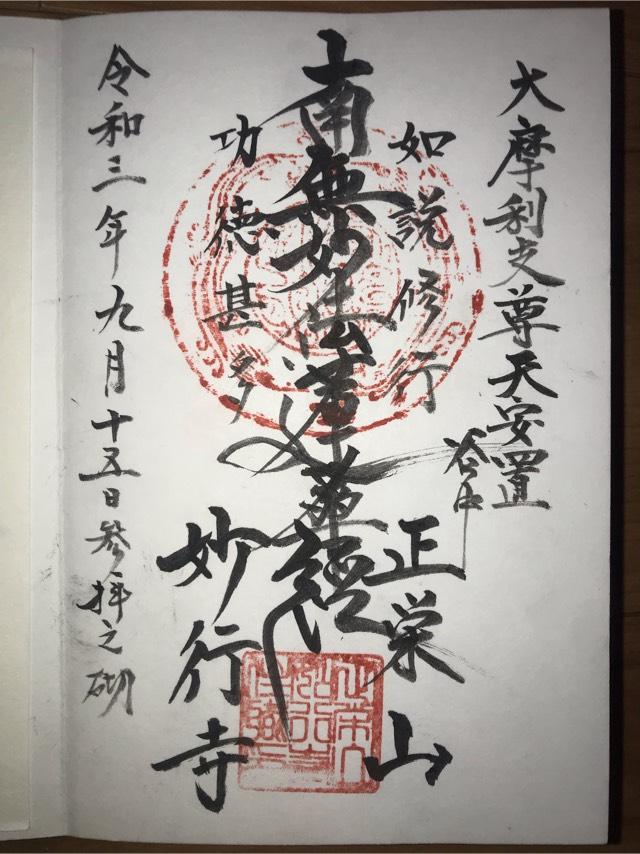 大摩利支尊天安置
谷中
正栄山
如説修行
南無妙法蓮華経
功徳甚多
妙行寺
令和三年九月十五日参拝之砌